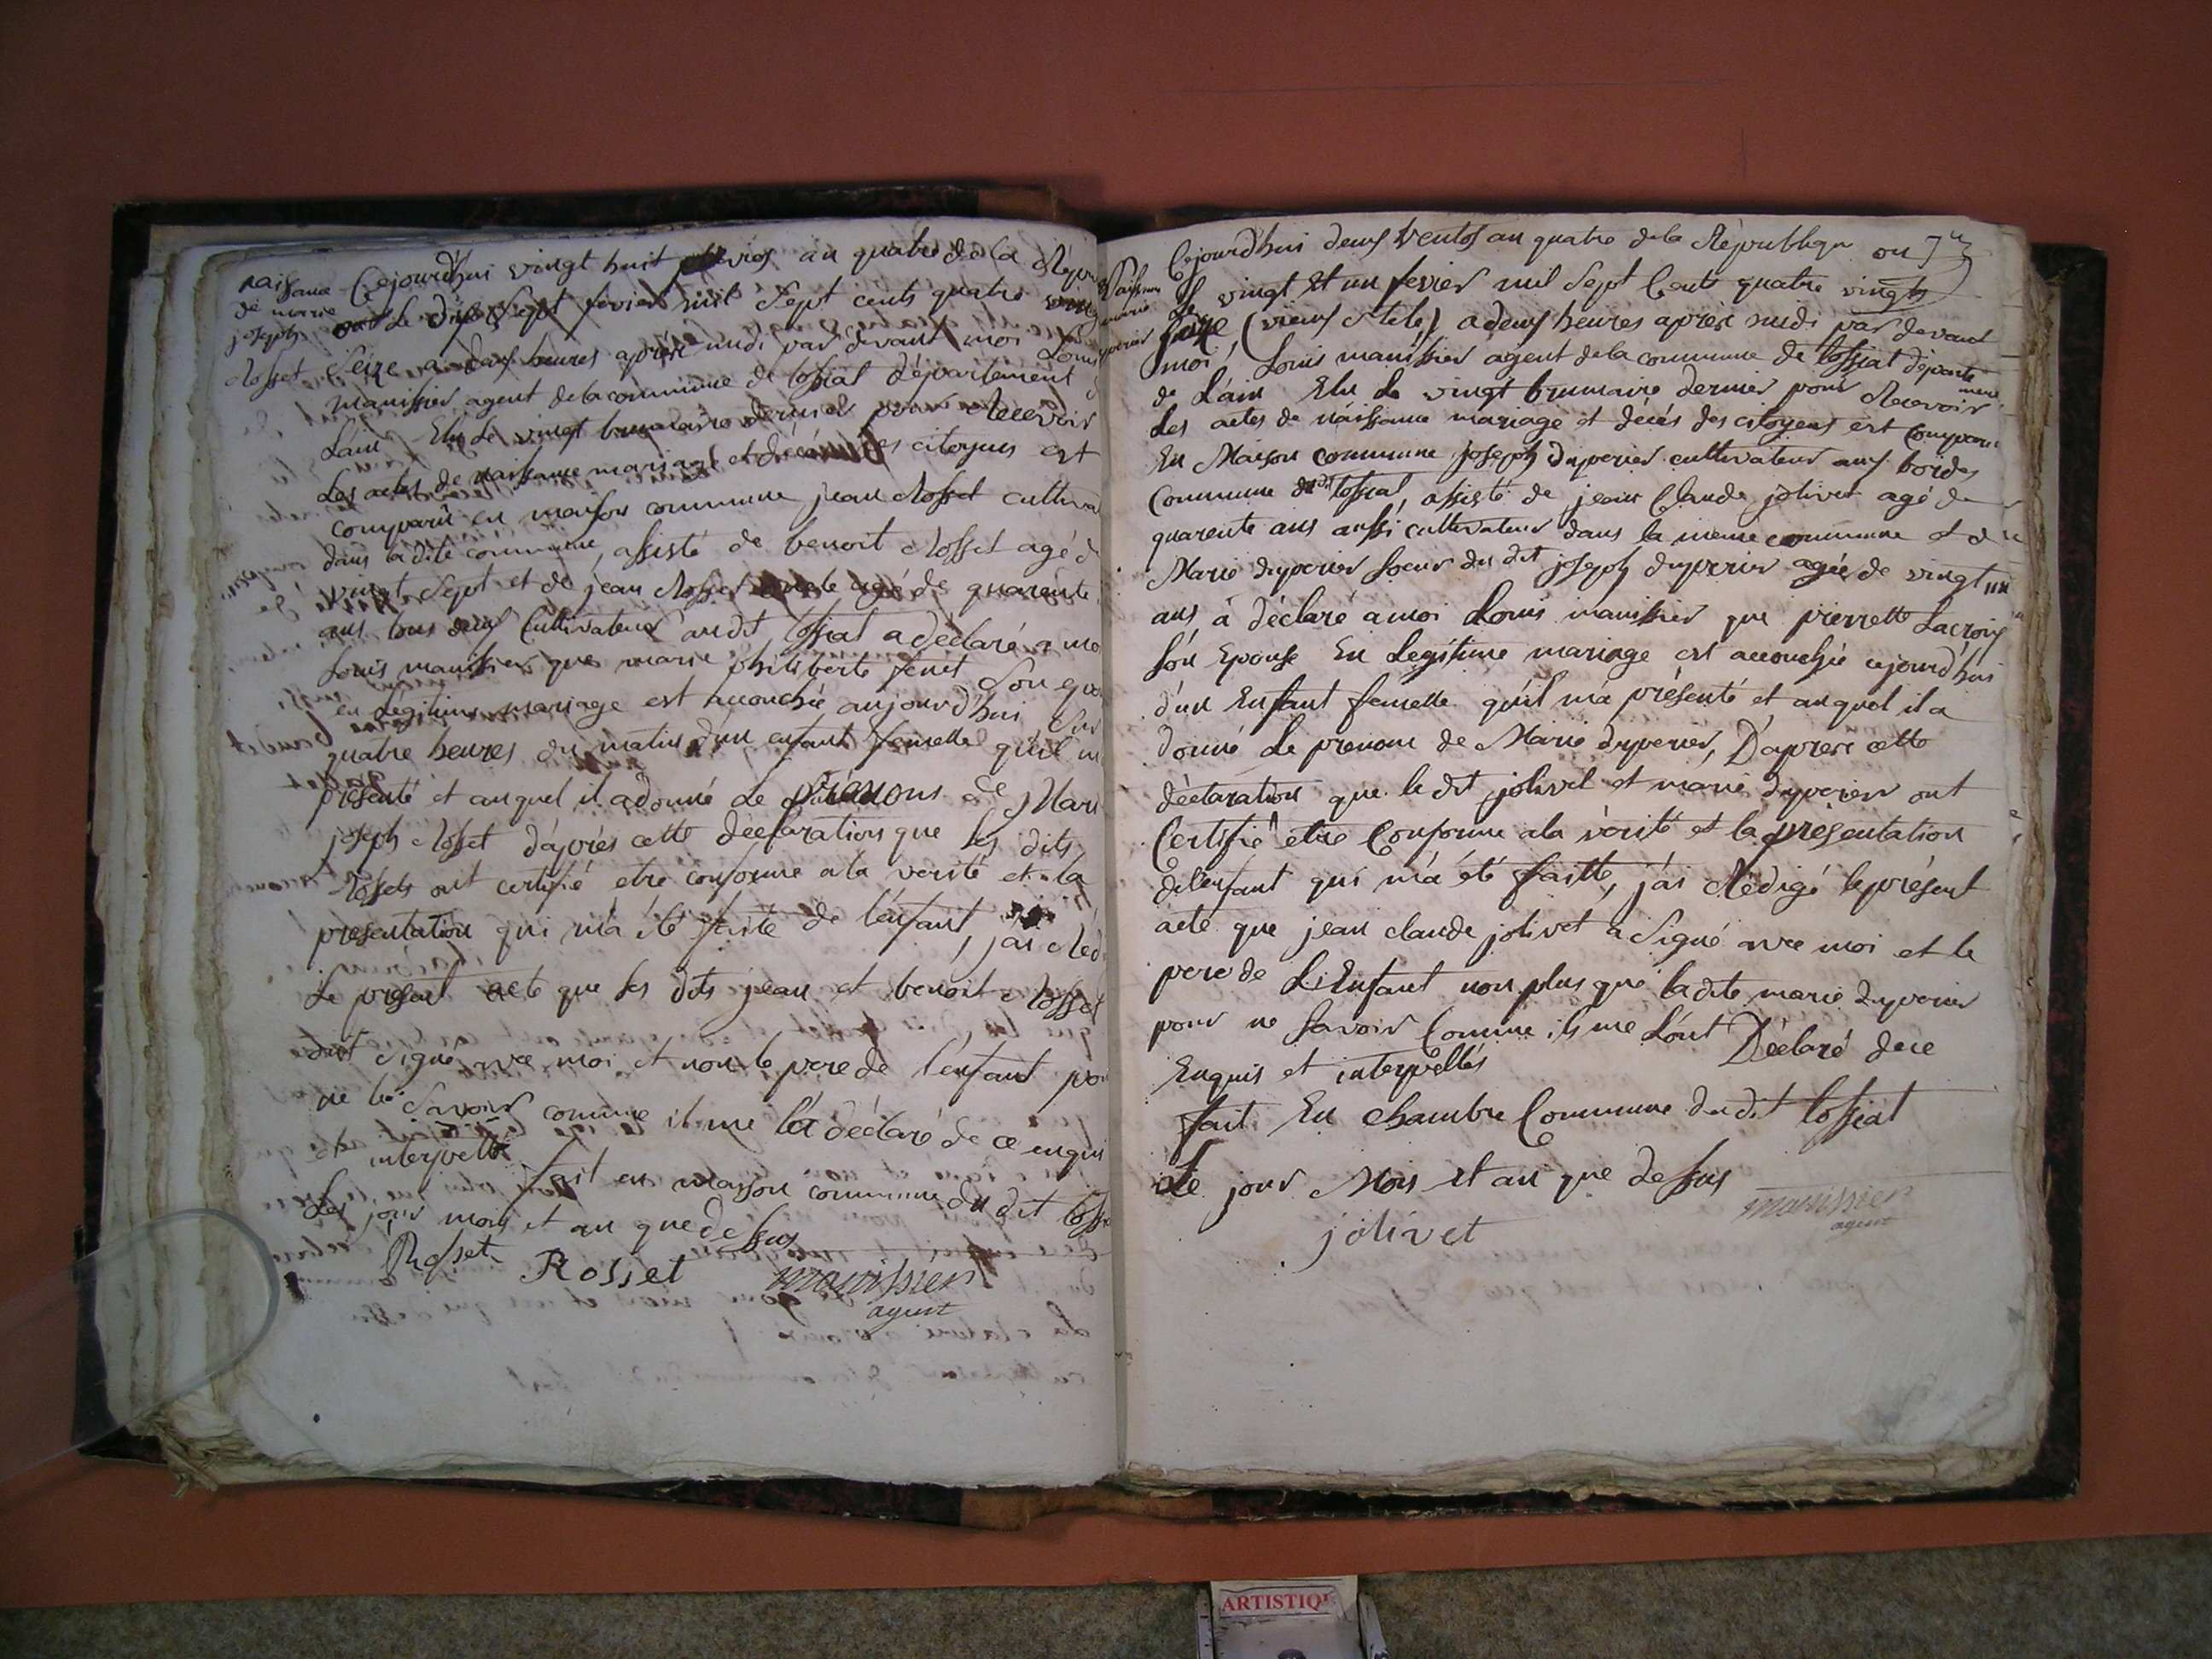 naissance
de marie
joseph
Rosset
Cejourd'hui vingt huit pluvios an quatre de la Répu
ou Le dix Sept fevier mil Sept cents quatre ving
Seize a deux heures après midi par devant moi Louis
manissier agent dela commune de lossiat département d
L'ain Elu Le vingt brumaire dernier pour Recevoir
Les actes de naissance mariage et décés des citoyens est
comparu en maison commune jean Rosset cultiva
dans la dite commune, assisté de benoit Rosset agé d
vingt Sept et de jean Rosset agé de quarente
ans tous deux Cultivateur audit lossiat a déclaré a mo
Louis manissier que marie philiberte fenet Son epo
en Legitime mariage est accouchée aujourd'hui Sur
quatre heures du matin d'un enfant femelle qu'il m
présenté et auquel il a donné Le prénons de Mari
joseph Rosset d'après cette déclaration que les dits
Rossets ont certifié etre conforme a la vérité et la
presentation qui m'a été faite de l'enfant, j'ai Réd
Le present acte que les dits jean et benoit Rosset
ont Signé avec moi et non le pere de l'enfant po
ne le Savoir comme il me l'a déclaré de ce enqui
et interpellé
fait en maison commune du dit loss
Les jour mois et an que dessus
Rosset Rosset manissier
agent
Naissance
marie
perier
Cejourd'hui deux Ventos an quatre dela Républiqu ou
Le vingt Et un fevier mil Sept Cents quatre vingts
Seize, (vieux Stile) a deux heures après midi par devant
moi, Louis manissier agent dela commune de lossiat départe
ment
de L'ain Elu Le vingt brumaire dernier pour Recevoir
Les actes de naissance mariage et décés des citoyens est Comparu
En Maison commune joseph duperier cultivateur aux bordes
Commune dudit lossiat, assisté de jean Claude jolivet agé de
quarente ans aussi cultivateur dans la meme commune et de
Marie duperier Soeur du dit joseph duperier agée de vingt un
ans à déclaré a moi Louis manissier que pierrette Lacroix
Son Epouse En Legitime mariage est accouchée cejourd'hui
d'un Enfant femelle qu'il m'a présenté et auquel il a
donné Le prenom de Marie duperier, D'apres cette
déclaration que le dit jolivet et marie duperier ont
Certifié etre Conforme ala vérité et la présentation
del'enfant qui m'a été faitte, j'ai Rédigé le présent
acte que jean claude jolivet a Signé avec moi et le
pere de L'Enfant non plus que la dite marie duperier
pour ne Savoir Comme ils me L'ont Déclaré de ce
Enquis et interpellés
fait En chambre Commune du dit lossiat
Le jour Mois et an que dessus
jolivet manissier
agent
ARTISTIQ